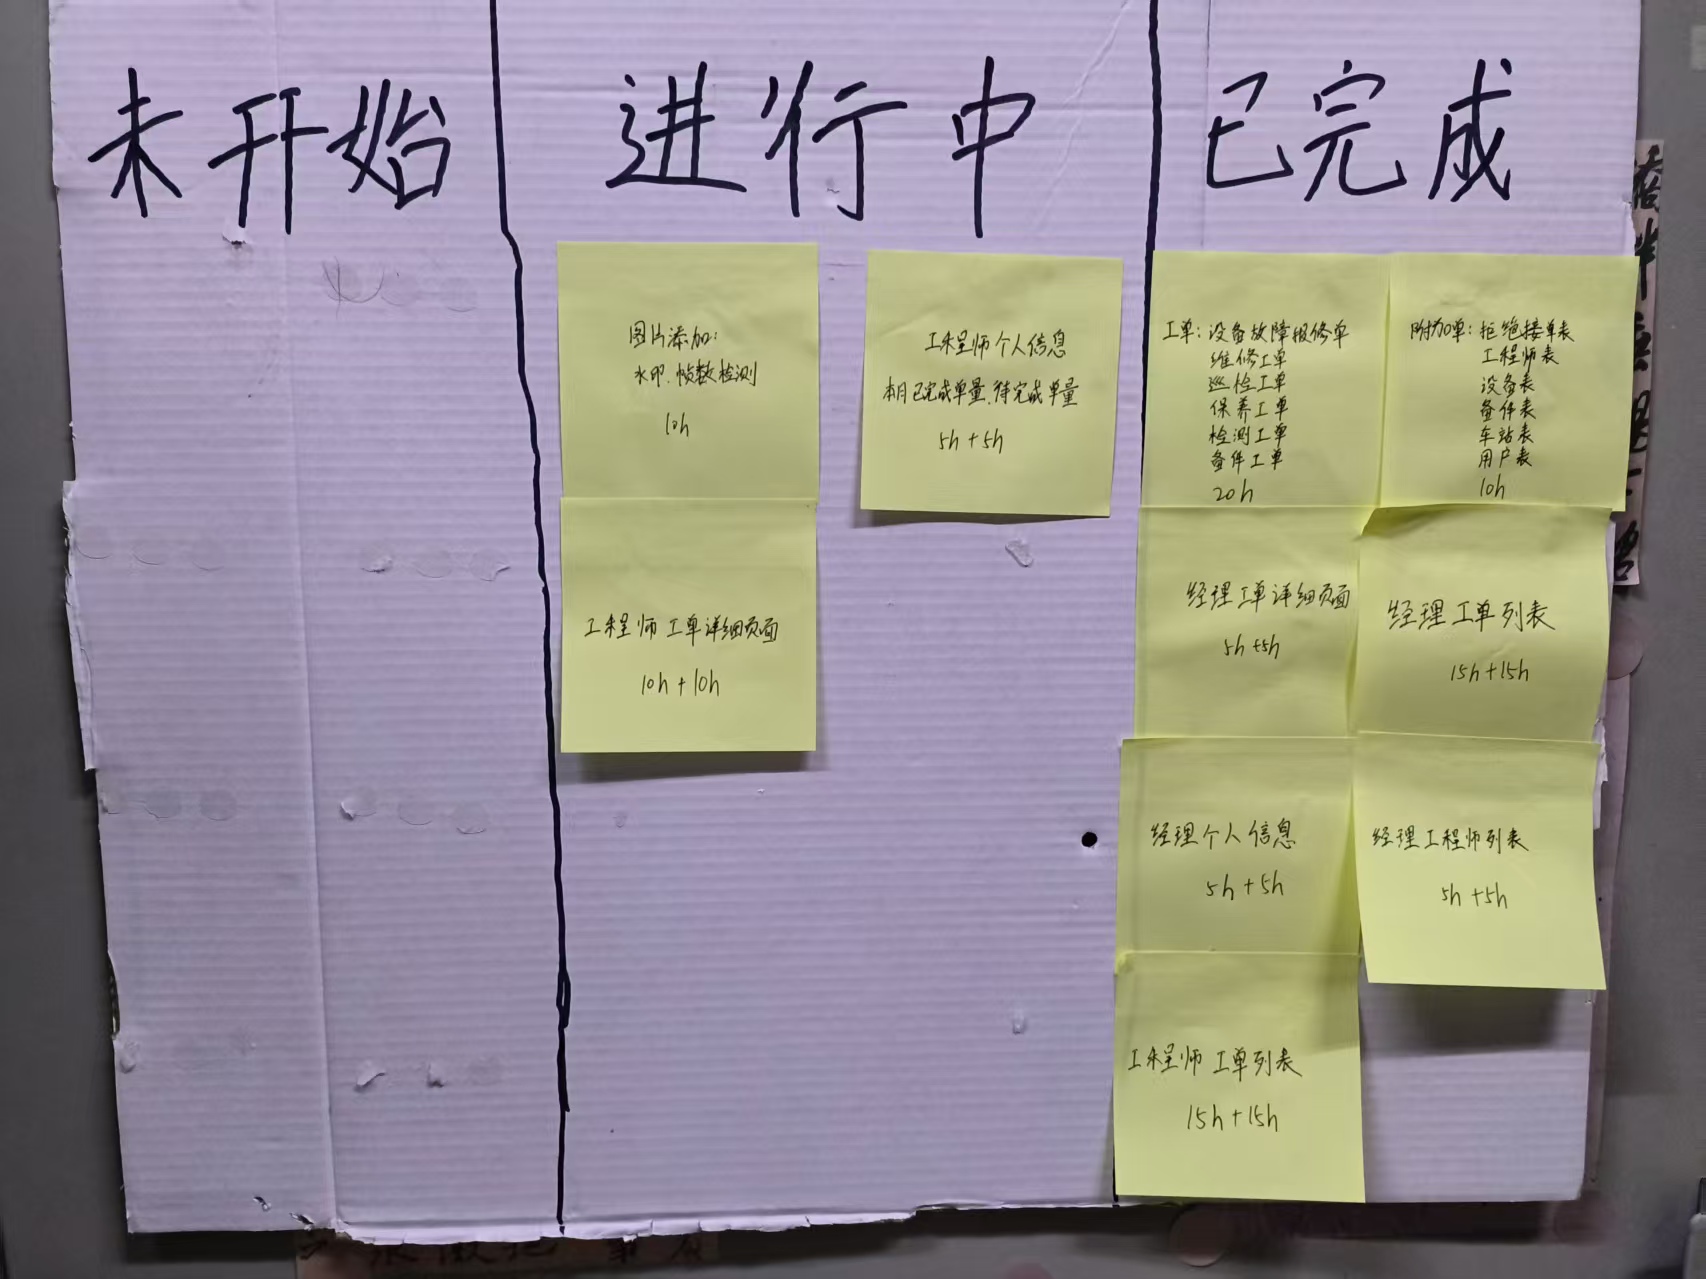 未开始
进行中
已完成
图片添加:
水印、帧数检测
10h
工程师个人信息
本月已完成单量、待完成单量
5h+5h
工程师工单详细页面
10h+10h
工单:设备故障报修单
维修工单
巡检工单
保养工单
检测工单
备件工单
20h
附加单:拒绝接单表
工程师表
设备表
备件表
车站表
用户表
10h
经理工单详细页面
5h+5h
经理工单列表
15h+15h
经理个人信息
5h+5h
经理工程师列表
5h+5h
工程师工单列表
15h+15h